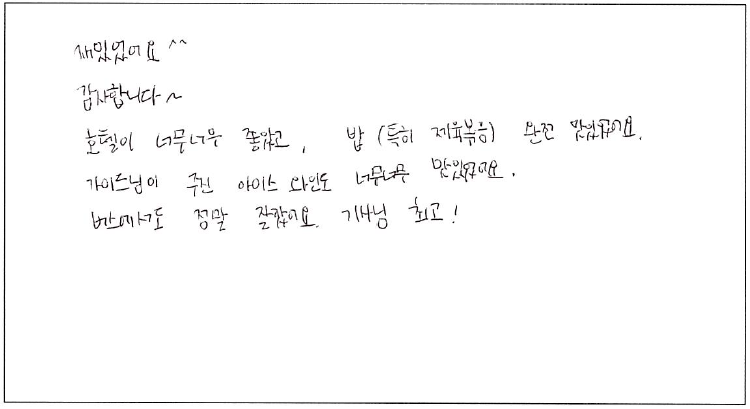 재밌었어요 ^^
감사합니다~
호텔이 너무너무 좋았고, 밥 (특히 제육볶음) 완전 맛있었어요.
가이드님이 주신 아이스 와인도 너무너무 맛있었어요.
버스에서도 정말 잘잤어요. 기사님 최고!